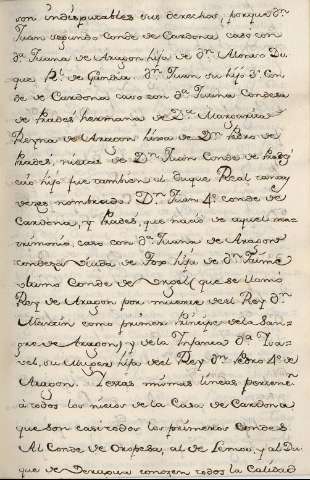 son indisputables sus derechos, porque dⁿ.
Juan segundo Conde de Cardona caso con
dª. Juana de Aragon hija de dⁿ. Alonso Du
que Rˡ. de Gandia. dⁿ. Juan su hijo 3º. Con
de de Cardona caso con dª. Juana Condesa
de Prades hermana de Dª. Margarita
Reyna de Aragon hixas de Dⁿ. Pedro de
Prades, nietas de Dⁿ. Juan Conde de Prades
cuio hijo fue tambien el duque Real tantas
vezes nombrado. Dⁿ. Juan 4º. conde de
Cardona, y Prades, que nació de aquel ma=
trimonio, caso con dª. Juana de Aragon
condesa viuda de Fox hija de dⁿ. Jaime
ultimo Conde de Urgél (que se llamó
Rey de Aragon por muerte del Rey dⁿ.
Martin como primer Principe de la San=
gre de Aragon) y de la Infanta dª. Isa=
vel, su Muger hija del Rey dⁿ. Pedro 4º. de
Aragon. Estas mismas lineas pertene⁼
à todos los nietos de la Casa de Cardona
que son casi todos los primeros Condes
Al Conde de Oropesa, al de Lemos, y al Du
que de Veragua conozen todos la Calidad